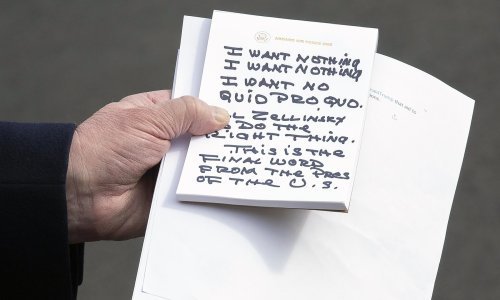 I WANT NOTHING
I WANT NOTHING
I WANT NO
QUID PRO QUO.
ZELLINSKY
DO THE
RIGHT THING.
THIS IS THE
FINAL WORD
FROM THE PRES
OF THE U.S.
that aid to